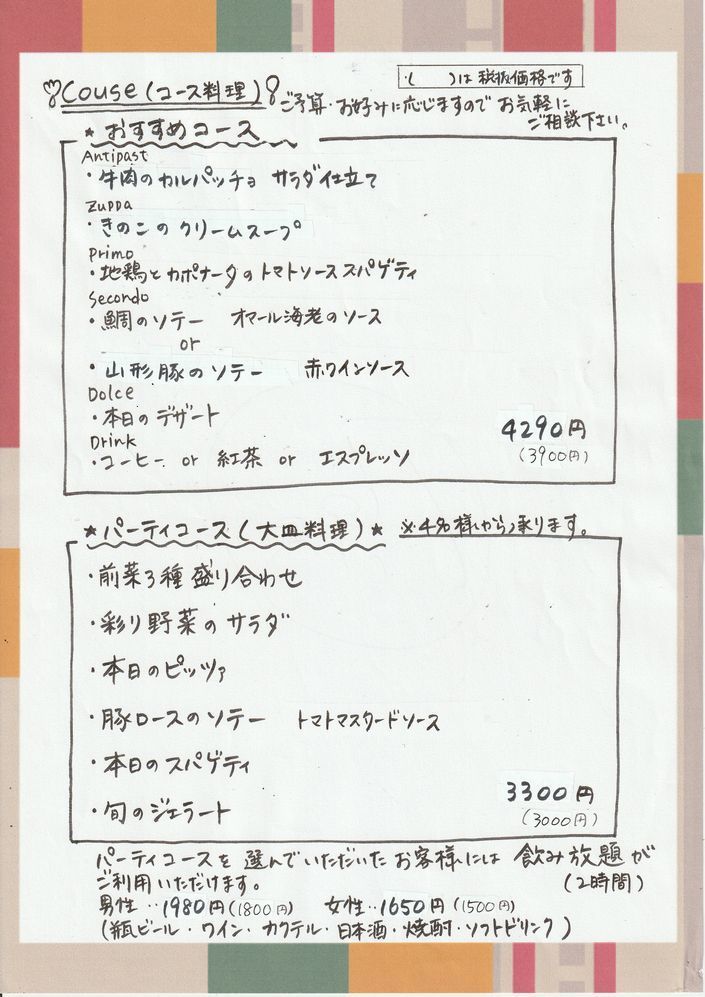 Couse (コース料理)
・( )は税抜価格です
ご予算・お好みに応じますので お気軽に
ご相談下さい。
★おすすめコース
Antipast
・牛肉のカルパッチョ サラダ仕立て
Zuppa
・きのこのクリームスープ
Primo
・地鶏とカポナータのトマトソーススパゲティ
Secondo
・鯛のソテー オマール海老のソース
or
・山形豚のソテー 赤ワインソース
Dolce
・本日のデザート
Drink
・コーヒー or 紅茶 or エスプレッソ
4290円
(3900円)
★パーティコース(大皿料理)★ ※4名様から承ります。
・前菜3種盛り合わせ
・彩り野菜のサラダ
・本日のピッツァ
・豚ロースのソテー トマトマスタードソース
・本日のスパゲティ
・旬のジェラート
3300円
(3000円)
パーティコースを選んでいただいたお客様には 飲み放題が
ご利用いただけます。 (2時間)
男性‥1980円(1800円) 女性‥1650円(1500円)
(瓶ビール・ワイン・カクテル・日本酒・焼酎・ソフトドリンク)